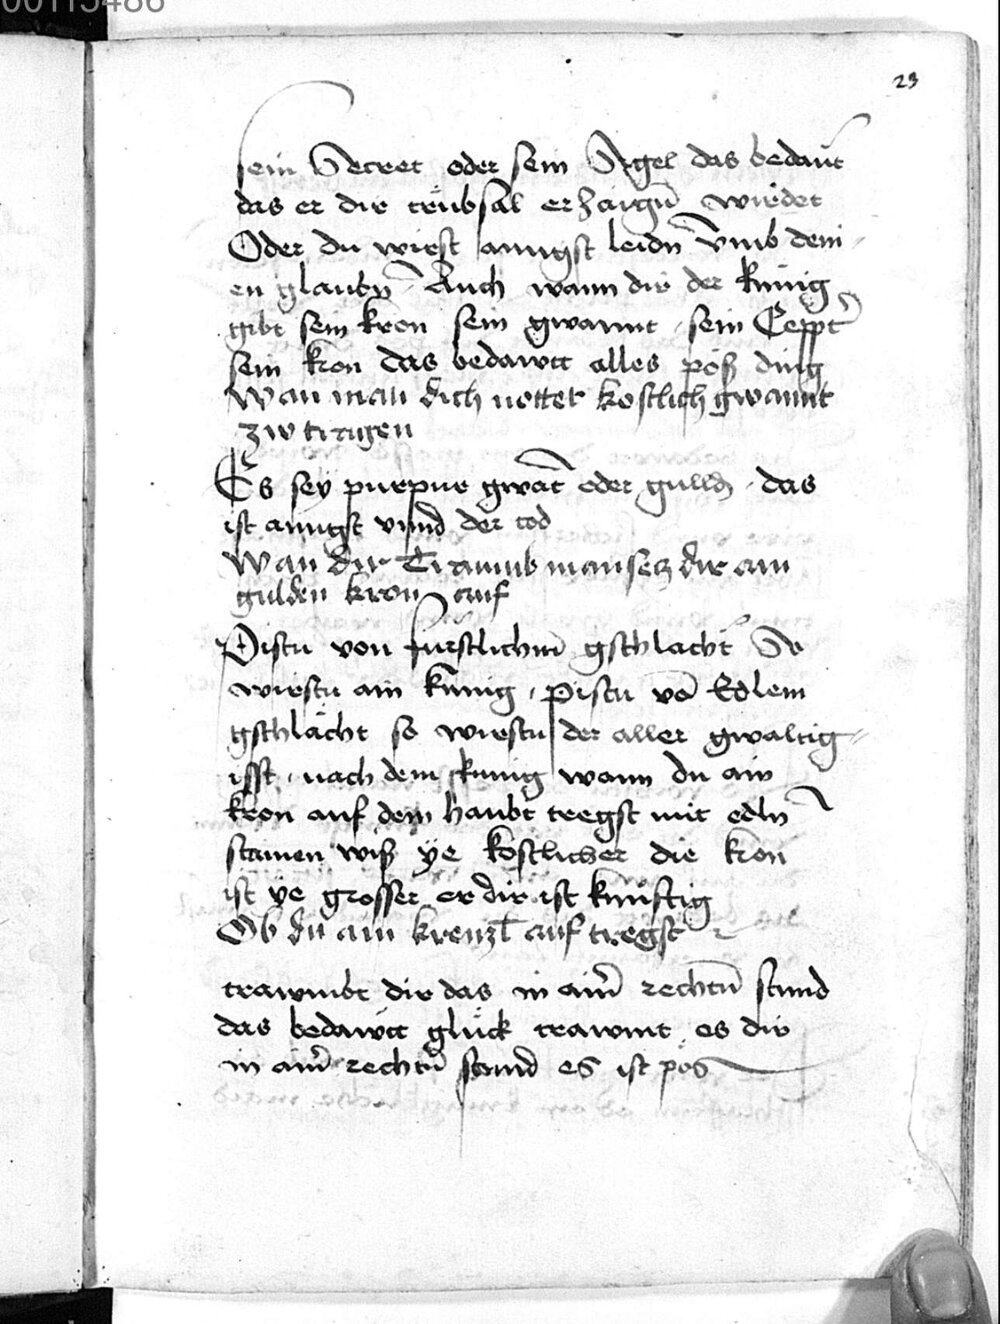 00115486
23
sein Secret oder sein Sigel das bedaüt
das er dir trübsal erzaigñ wirdet
Oder du wirst anngst leidñ vmb dein
en glaubñ Auch wann dir der künig
gibt sein kron sein gwannt sein Ceppt
sein kron das bedawtt alles pöß ding
Wan man dich nottet kostlich gwannt
zw tragen
Es sey purpur gwāt oder gulld das
ist anngst vnnd der tod
Wan dir Traumb man secz dir ain
gulden kron auf
Pistu von furstlichm̄ gschlächt So
wirstu ain künig pistu vō Edlem
gschlächt so wirstu der aller gwaltig
isst nach dem künig wann du ain
kron auf dem haubt tregst mit edlñ
stainen wiß ye kostlicher die kron
ist ye grosser er dir ist künftig
Ob du ain krenzl auf tregst
trawmbt dir das in aīr rechtñ stund
das bedawtt glück trawmt es dir
in aīr rechtñ stund es ist pös